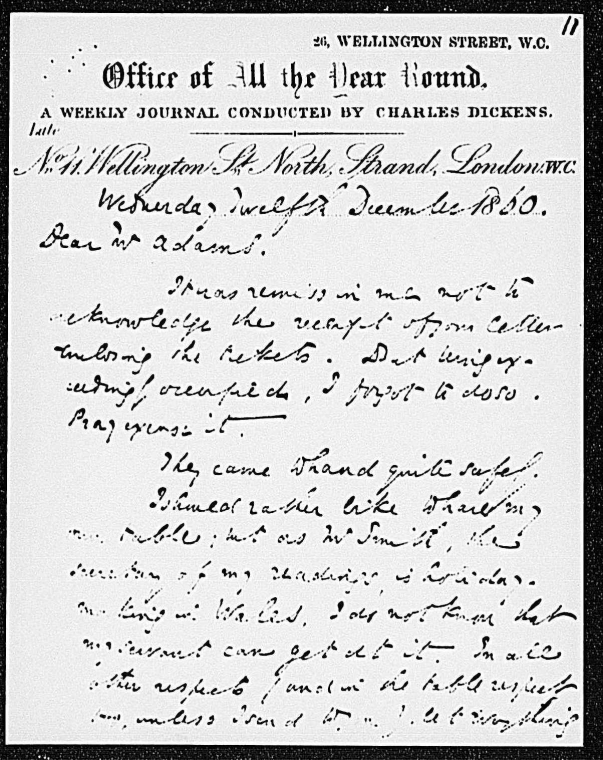 11
26, WELLINGTON STREET, W.C.
Office of All the Year Round.
A WEEKLY JOURNAL CONDUCTED BY CHARLES DICKENS.
Late
No. 11. Wellington St. North, Strand, London. W.C.
Wednesday Twelfth December 1860.
Dear Mr Adams.
It was remiss in me not to
acknowledge the receipt of your letter
enclosing the tickets. But being ex-
ceedingly occupied, I forgot to do so.
Pray excuse it.
They came to hand quite safely.
I should rather like to have my
own table; but as Mr Smith, the
secretary of my readings, is holiday-
making in Wales, I do not know that
my servant can get at it. In all
other respects (and in the table respect
too, unless I send to you) let everything